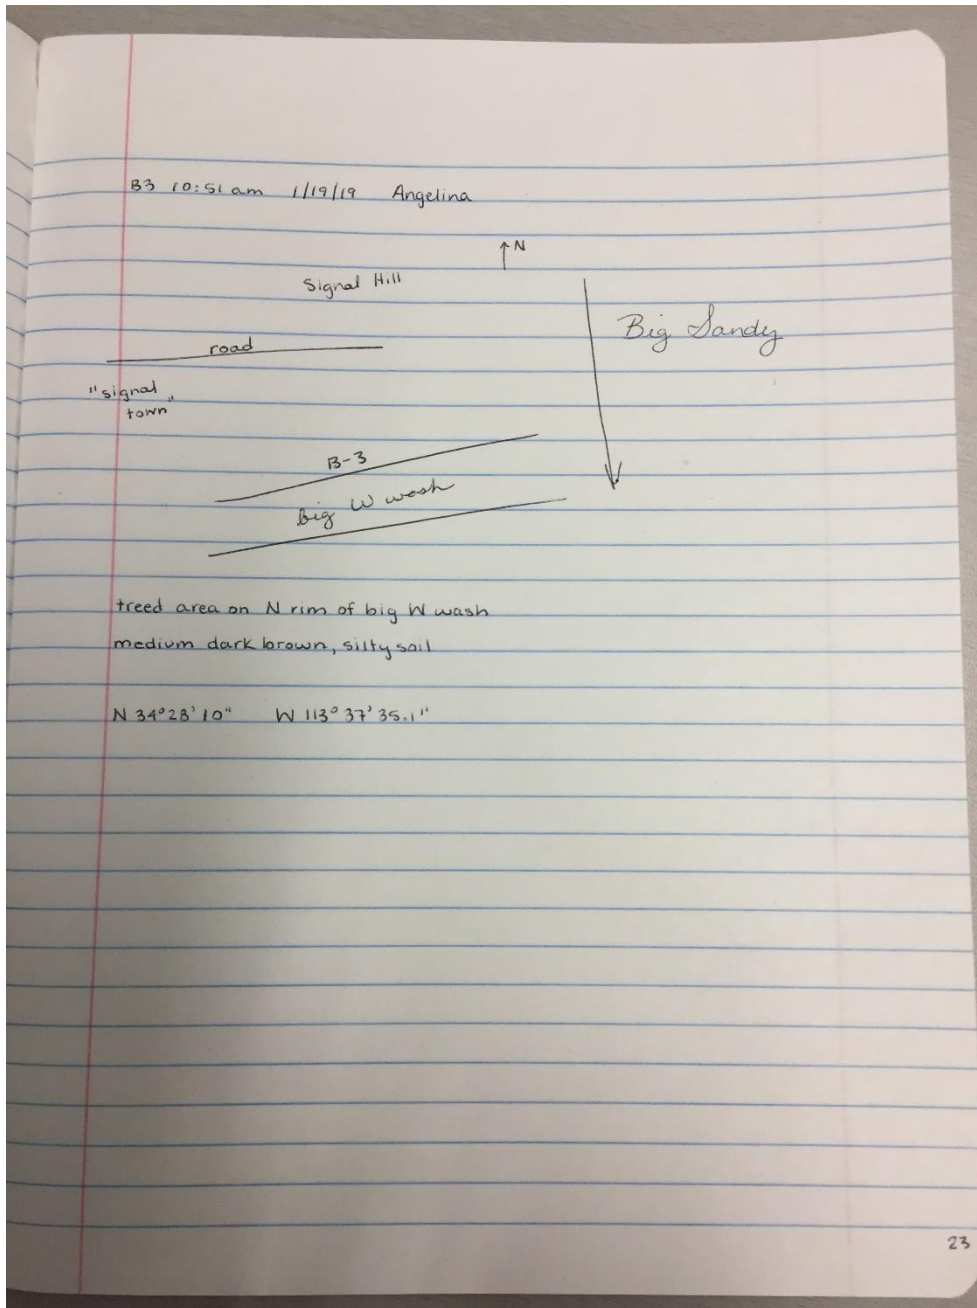 B3 10:51 am 1/19/19 Angelina
↑N
Signal Hill
Big Sandy
road
"signal
town"
B-3
Big W wash
treed area on N rim of big W wash
medium dark brown, silty soil
N 34°28'10" W 113°37'35.1"
23